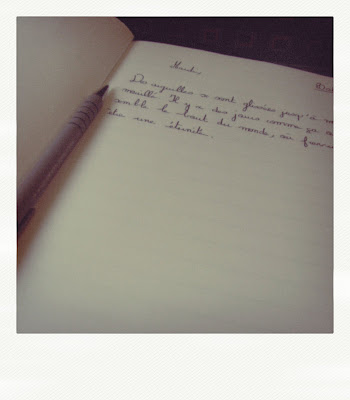 Mardi,
Des aiguilles se sont glissées jusqu'à
mouillé. Il y a des jours comme ça
semble le bout du monde, où
une éternité.